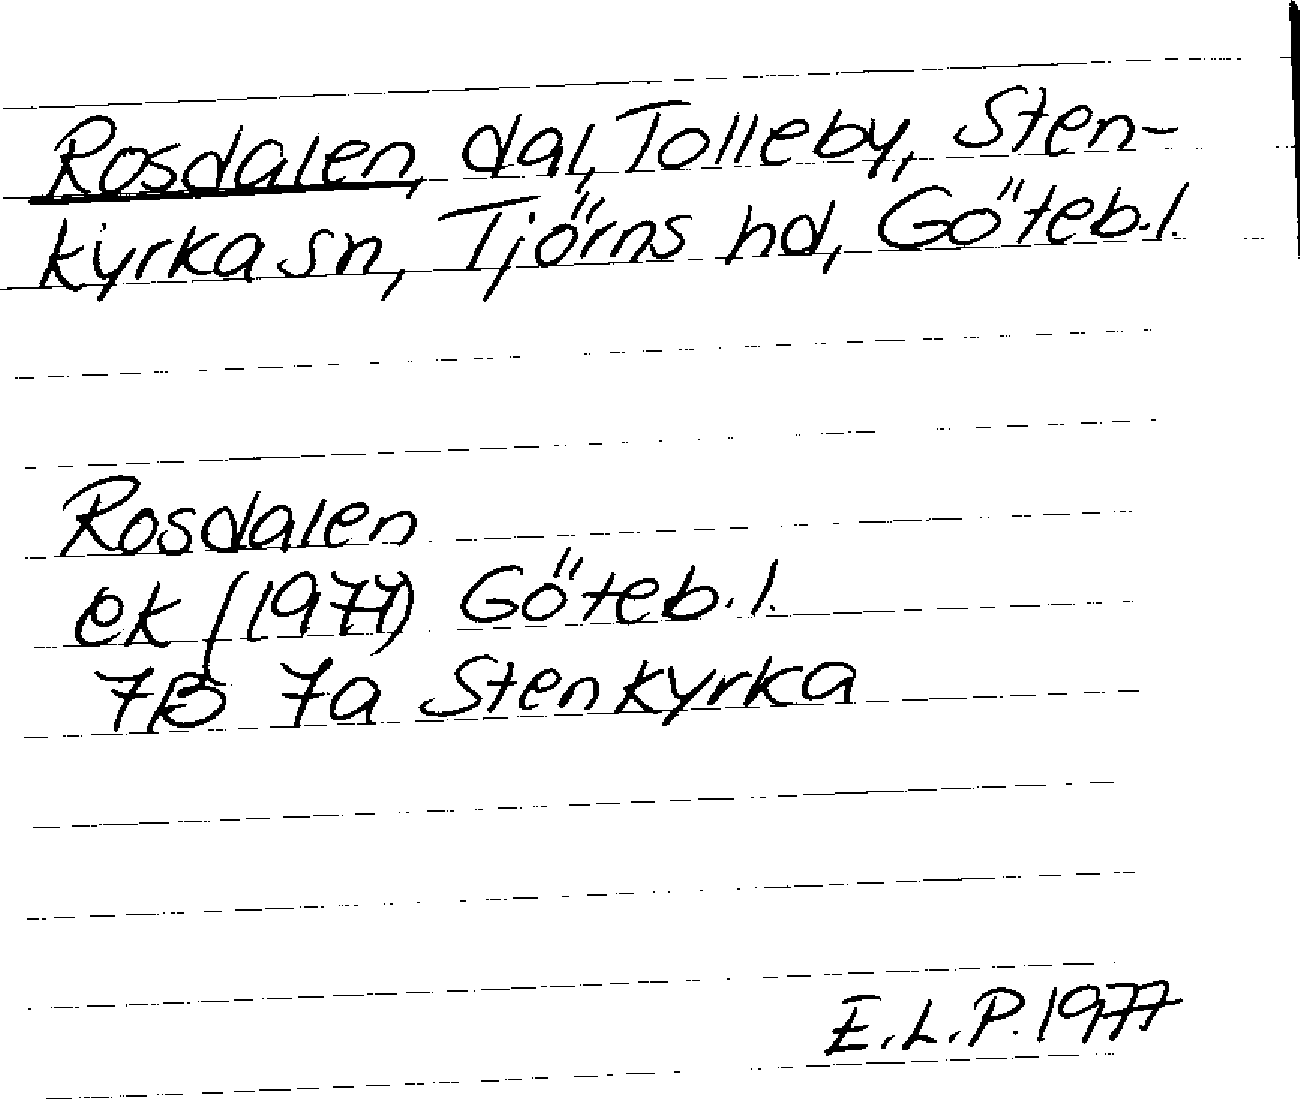 Rosdalen, dal, Tolleby, Sten-
kyrka sn, Tjörns hd, Göteb.l.
Rosdalen
ek (1977) Göteb.l.
7B 7a Stenkyrka
E.L.P. 1977